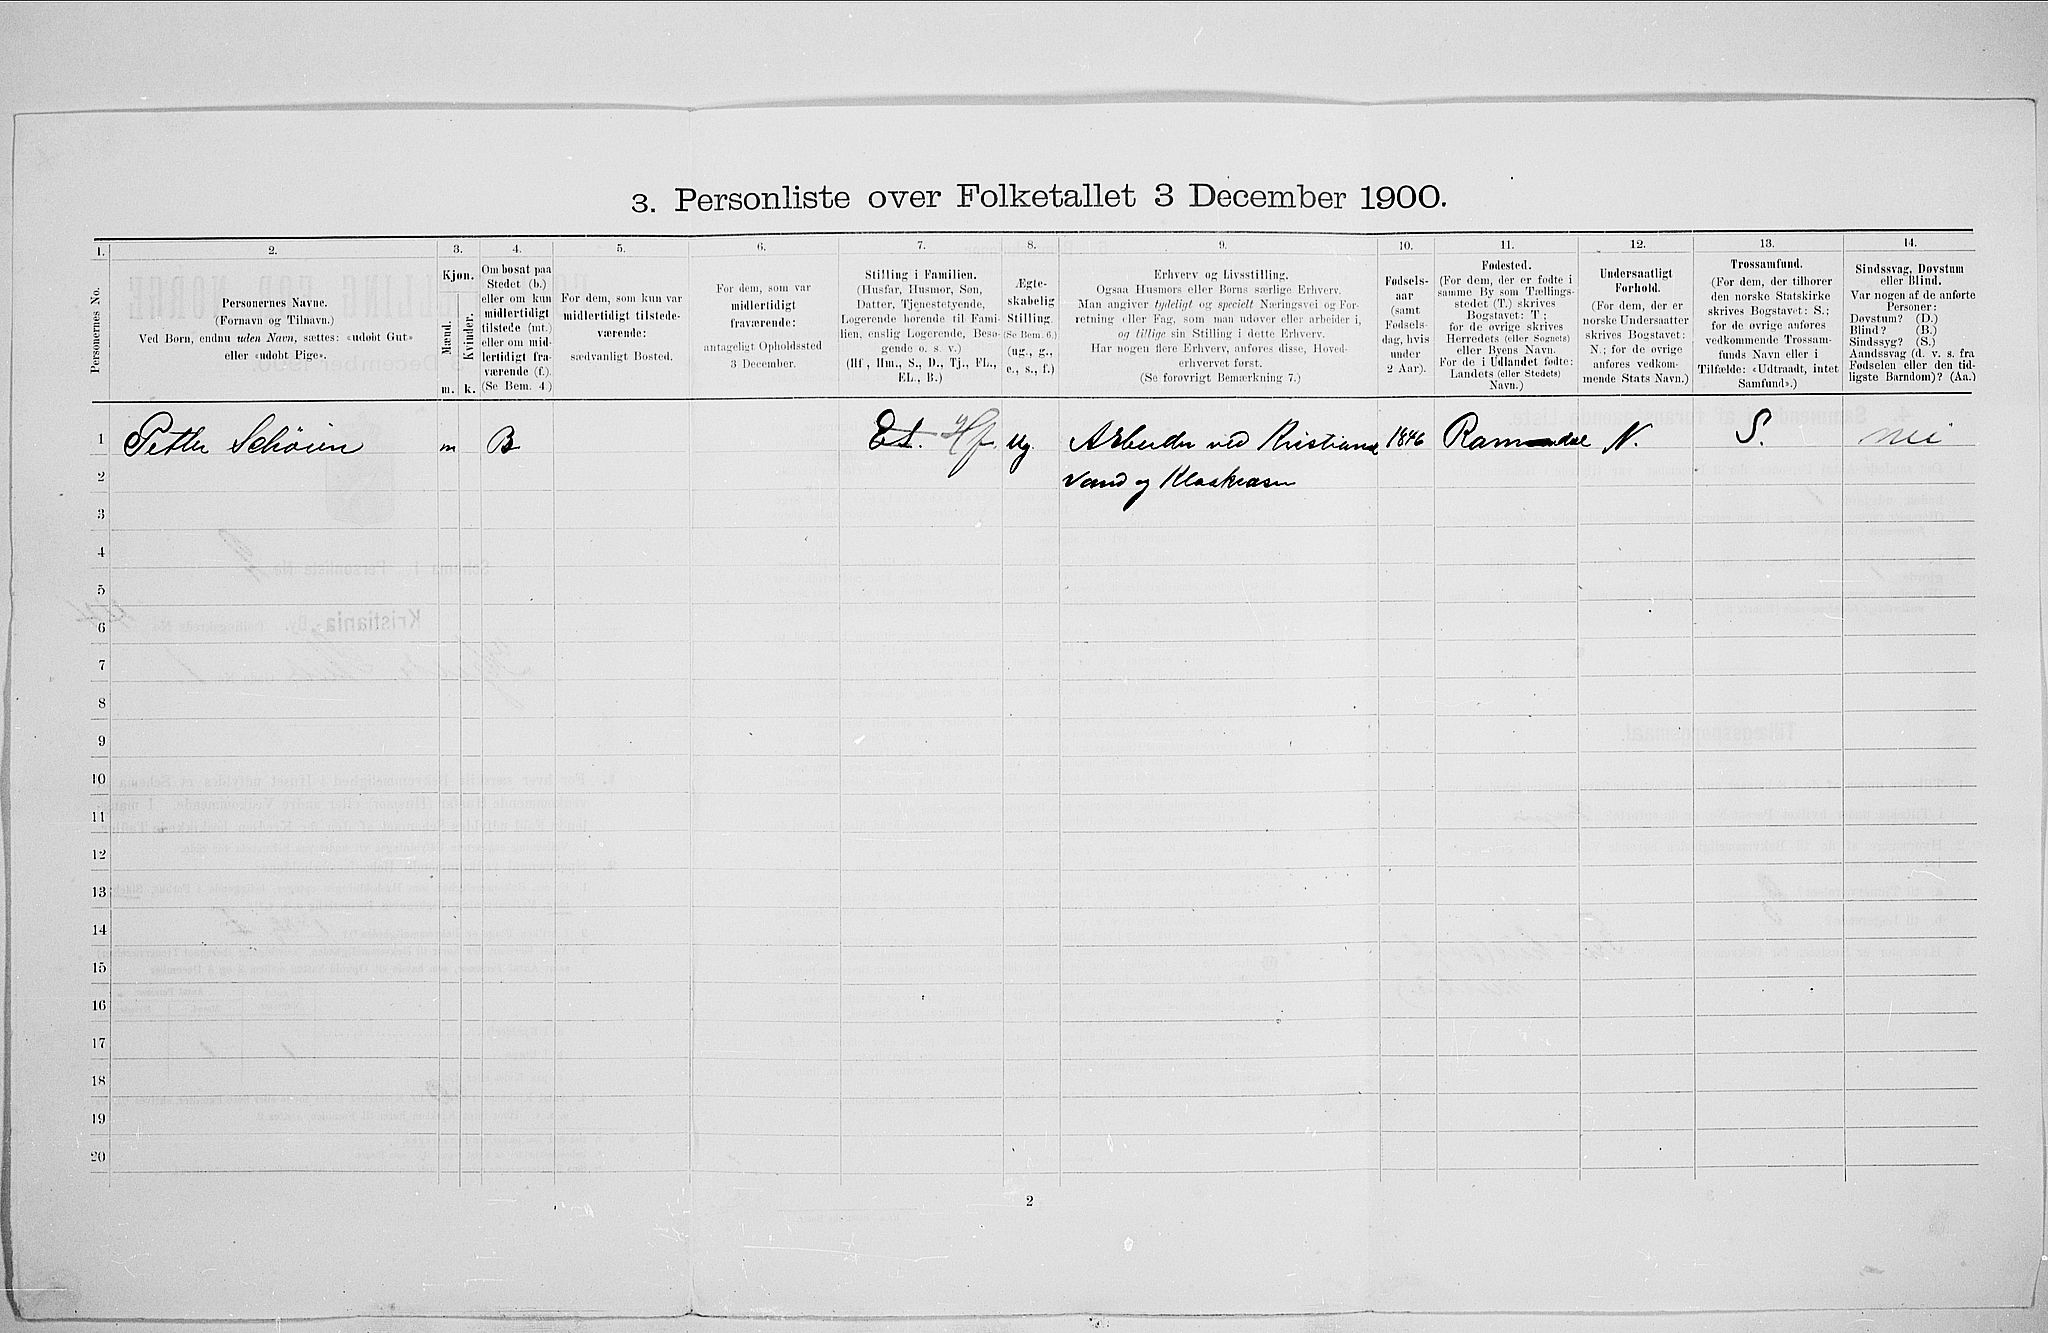 3. Personliste over Folketallet 3 December 1900.
1. 2. 3. 4. 5. 6. 7. 8. 9. 10. 11. 12. 13. 14.
Personernes No.
Personernes Navne.
(Fornavn og Tilnavn.)
Ved Børn, endnu uden Navn, sættes: «udøbt Gut»
eller «udøbt Pige».
Kjøn.
Mænd.
Kvinder.
m. k.
Om bosat paa
Stedet (b.)
eller om kun
midlertidigt
tilstede (mt.)
eller om mid-
lertidigt fra-
værende (f.)
(Se Bem. 4.)
For dem, som kun var
midlertidigt tilstede-
værende:
sædvanligt Bosted.
For dem, som var
midlertidigt
fraværende:
antageligt Opholdssted
3 December.
Stilling i Familien.
(Husfar, Husmor, Søn,
Datter, Tjenestetyende,
Logerende hørende til Fami-
lien, enslig Logerende, Besø-
gende o. s. v.)
(Hf., Hm., S., D., Tj., FL.,
EL., B.)
Ægte-
skabelig
Stilling.
(Se Bem. 6.)
(ug., g.,
e., s., f.)
Erhverv og Livsstilling.
Ogsaa Husmors eller Børns særlige Erhverv.
Man angiver tydeligt og specielt Næringsvei og For-
retning eller Fag, som man udøver eller arbeider i,
og tillige sin Stilling i dette Erhverv.
Har nogen flere Erhverv, anføres disse, Hoved-
erhvervet først.
(Se forøvrigt Bemærkning 7.)
Fødsels-
aar
(samt
Fødsels-
dag, hvis
under
2 Aar).
Fødested.
(For dem, der er fødte i
samme By som Tællings-
stedet (T.) skrives
Bogstavet: T;
for de øvrige skrives
Herredets (eller Sognets)
eller Byens Navn.
For de i Udlandet fødte:
Landets (eller Stedets)
Navn.)
Undersaatligt
Forhold.
(For dem, der er
norske Undersaatter
skrives Bogstavet:
N.; for de øvrige
anføres vedkom-
mende Stats Navn.)
Trossamfund.
(For dem, der tilhører
den norske Statskirke
skrives Bogstavet: S.;
for de øvrige anføres
vedkommende Trossam-
funds Navn eller i
Tilfælde: «Udtraadt, intet
Samfund».)
Sindssvag, Døvstum
eller Blind.
Var nogen af de anførte
Personer:
Døvstum? (D.)
Blind? (B.)
Sindssyg? (S.)
Aandssvag (d. v. s. fra
Fødselen eller den tid-
ligste Barndom)? (Aa.)
1 Petter Schöien m B E L. Hf. Ug. Arbeider ved Kristiania 1846 N. S. nei
2 Vand og
3
4
5
6
7
8
9
10
11
12
13
14
15
16
17
18
19
20
2